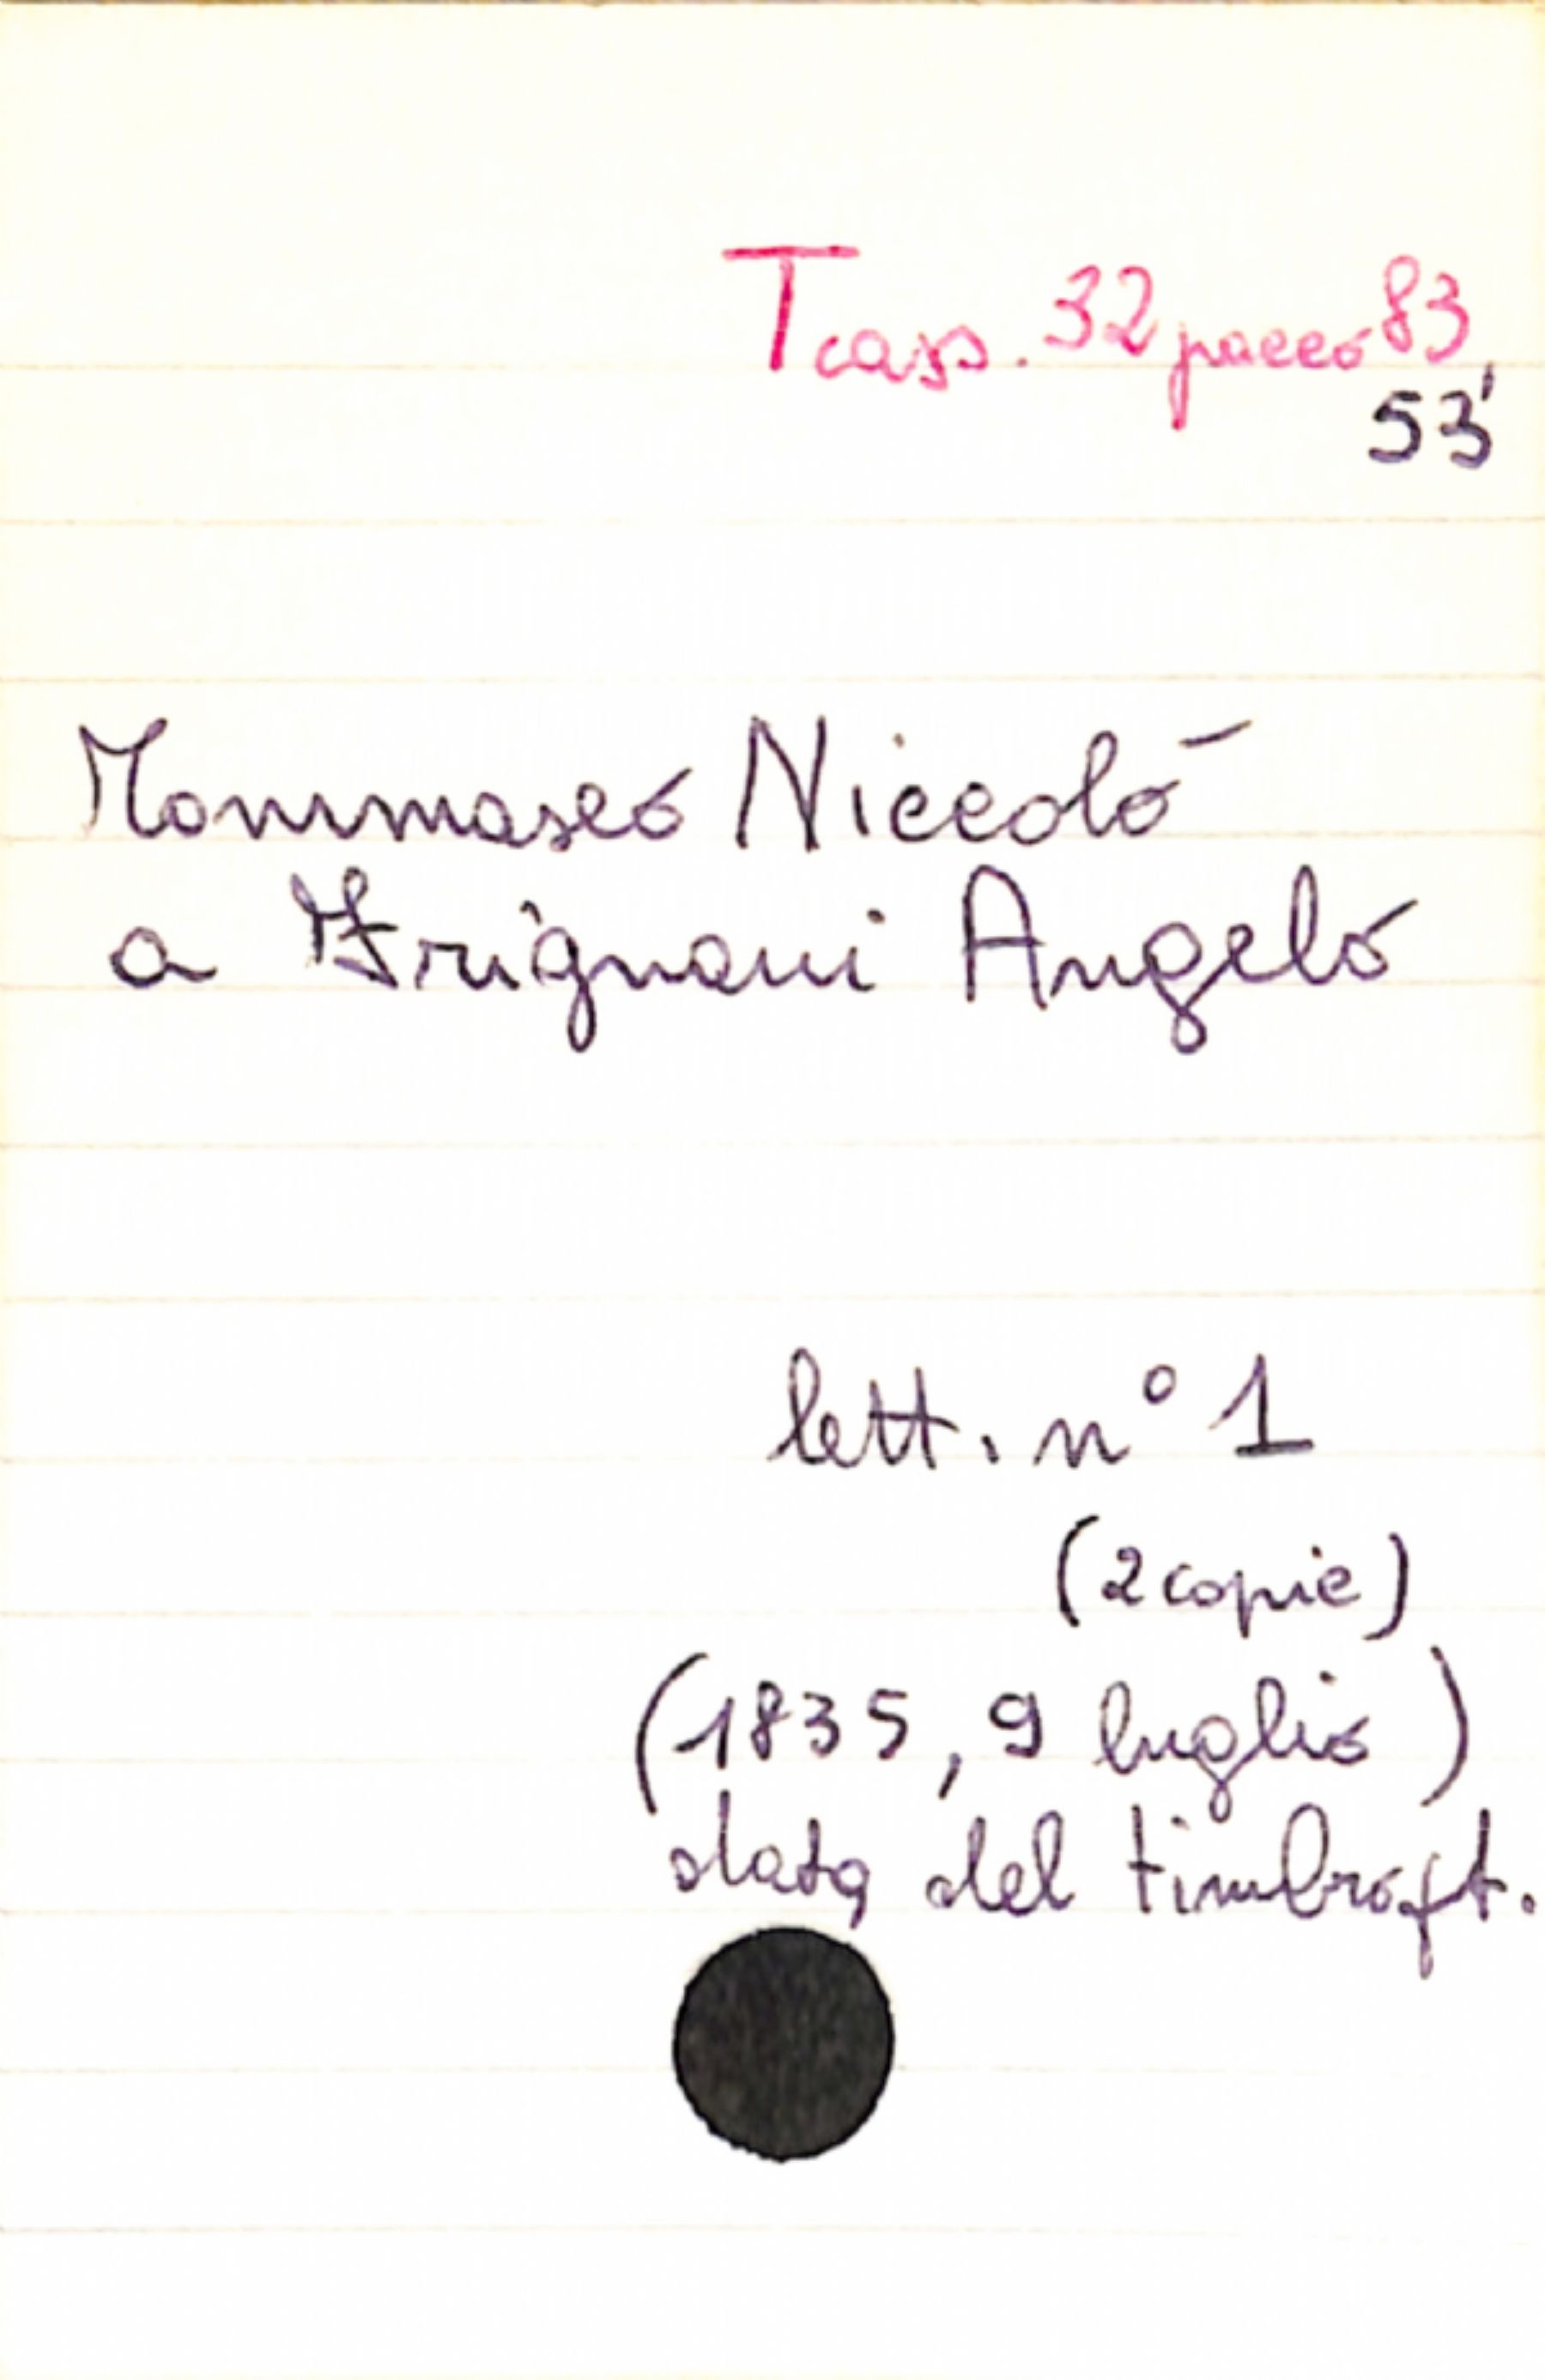 T cass. 32 pacco 83,
53
Tommaseo Niccolò
a Frignani Angelo
lett. n° 1
(2 copie)
(1835, 9 luglio)
data del timbro pt.